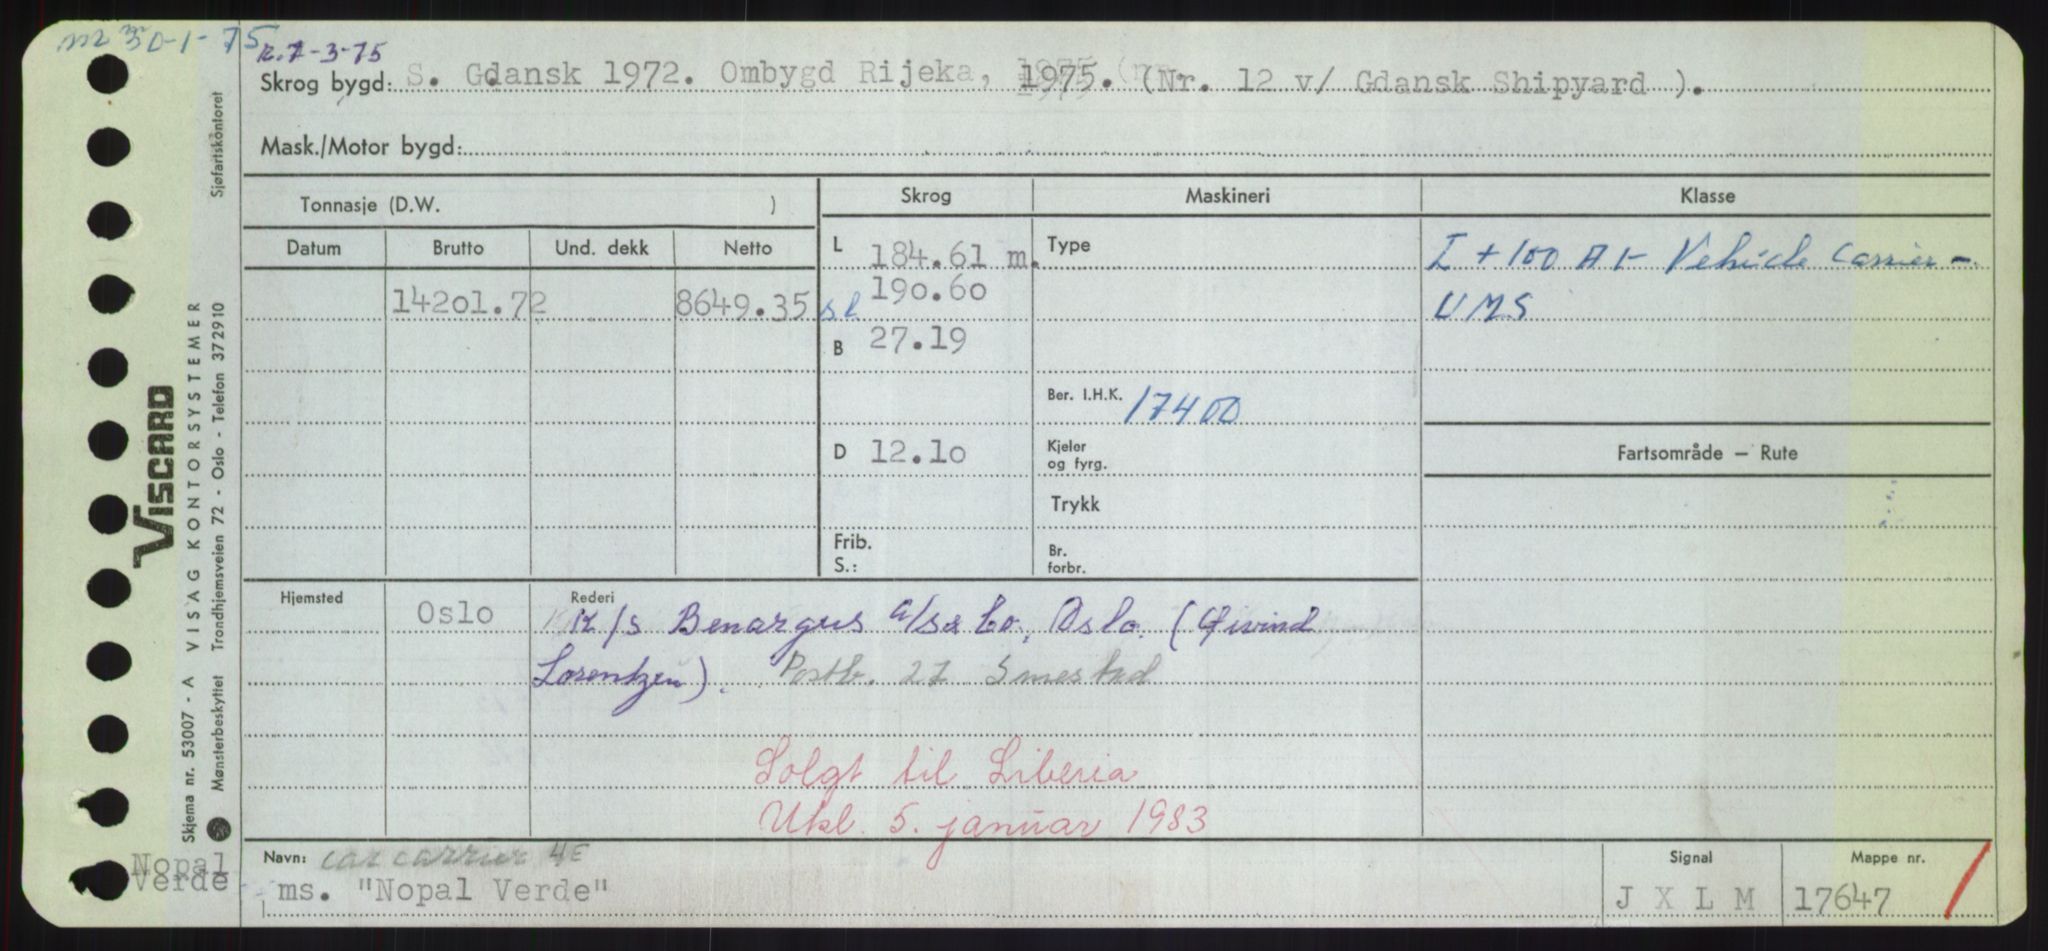 m 30-1-75
R. 7-3-75
Skrog bygd: S. Gdansk 1972. Ombygd Rijeka, 1975. (Nr. 12 v/ Gdansk Shipyard ).
Mask./Motor bygd:
Tonnasje (D.W. )
Skrog
Maskineri
Klasse
Datum
Brutto
Und. dekk
Netto
14201.72
8649.35
L 184.61 m.
sl 190.60
B 27.19
D 12.10
Frib.
S.:
Type
Ber. I.H.K. 17400
Kjeler
og fyrg.
Trykk
Br.
forbr.
I + 100 A 1- Vehicle Carrier -
UMS
Fartsområde – Rute
Hjemsted
Oslo
Rederi
K/S Benargus A/S & Co, Oslo. (Øivind
Lorentzen). Postb. 27 Smestad
Solgt til Liberia
Utkl. 5. januar 1983
Navn: car carrier 4E
ms. "Nopal Verde"
Signal
J X L M
Mappe nr.
17647
Nopal
Verde
VISCARD
Skjema nr. 53007 - A VISAG KONTORSYSTEMER
Mønsterbeskyttet Trondhjemsveien 72 - Oslo - Telefon 372910
Sjøfartskontoret